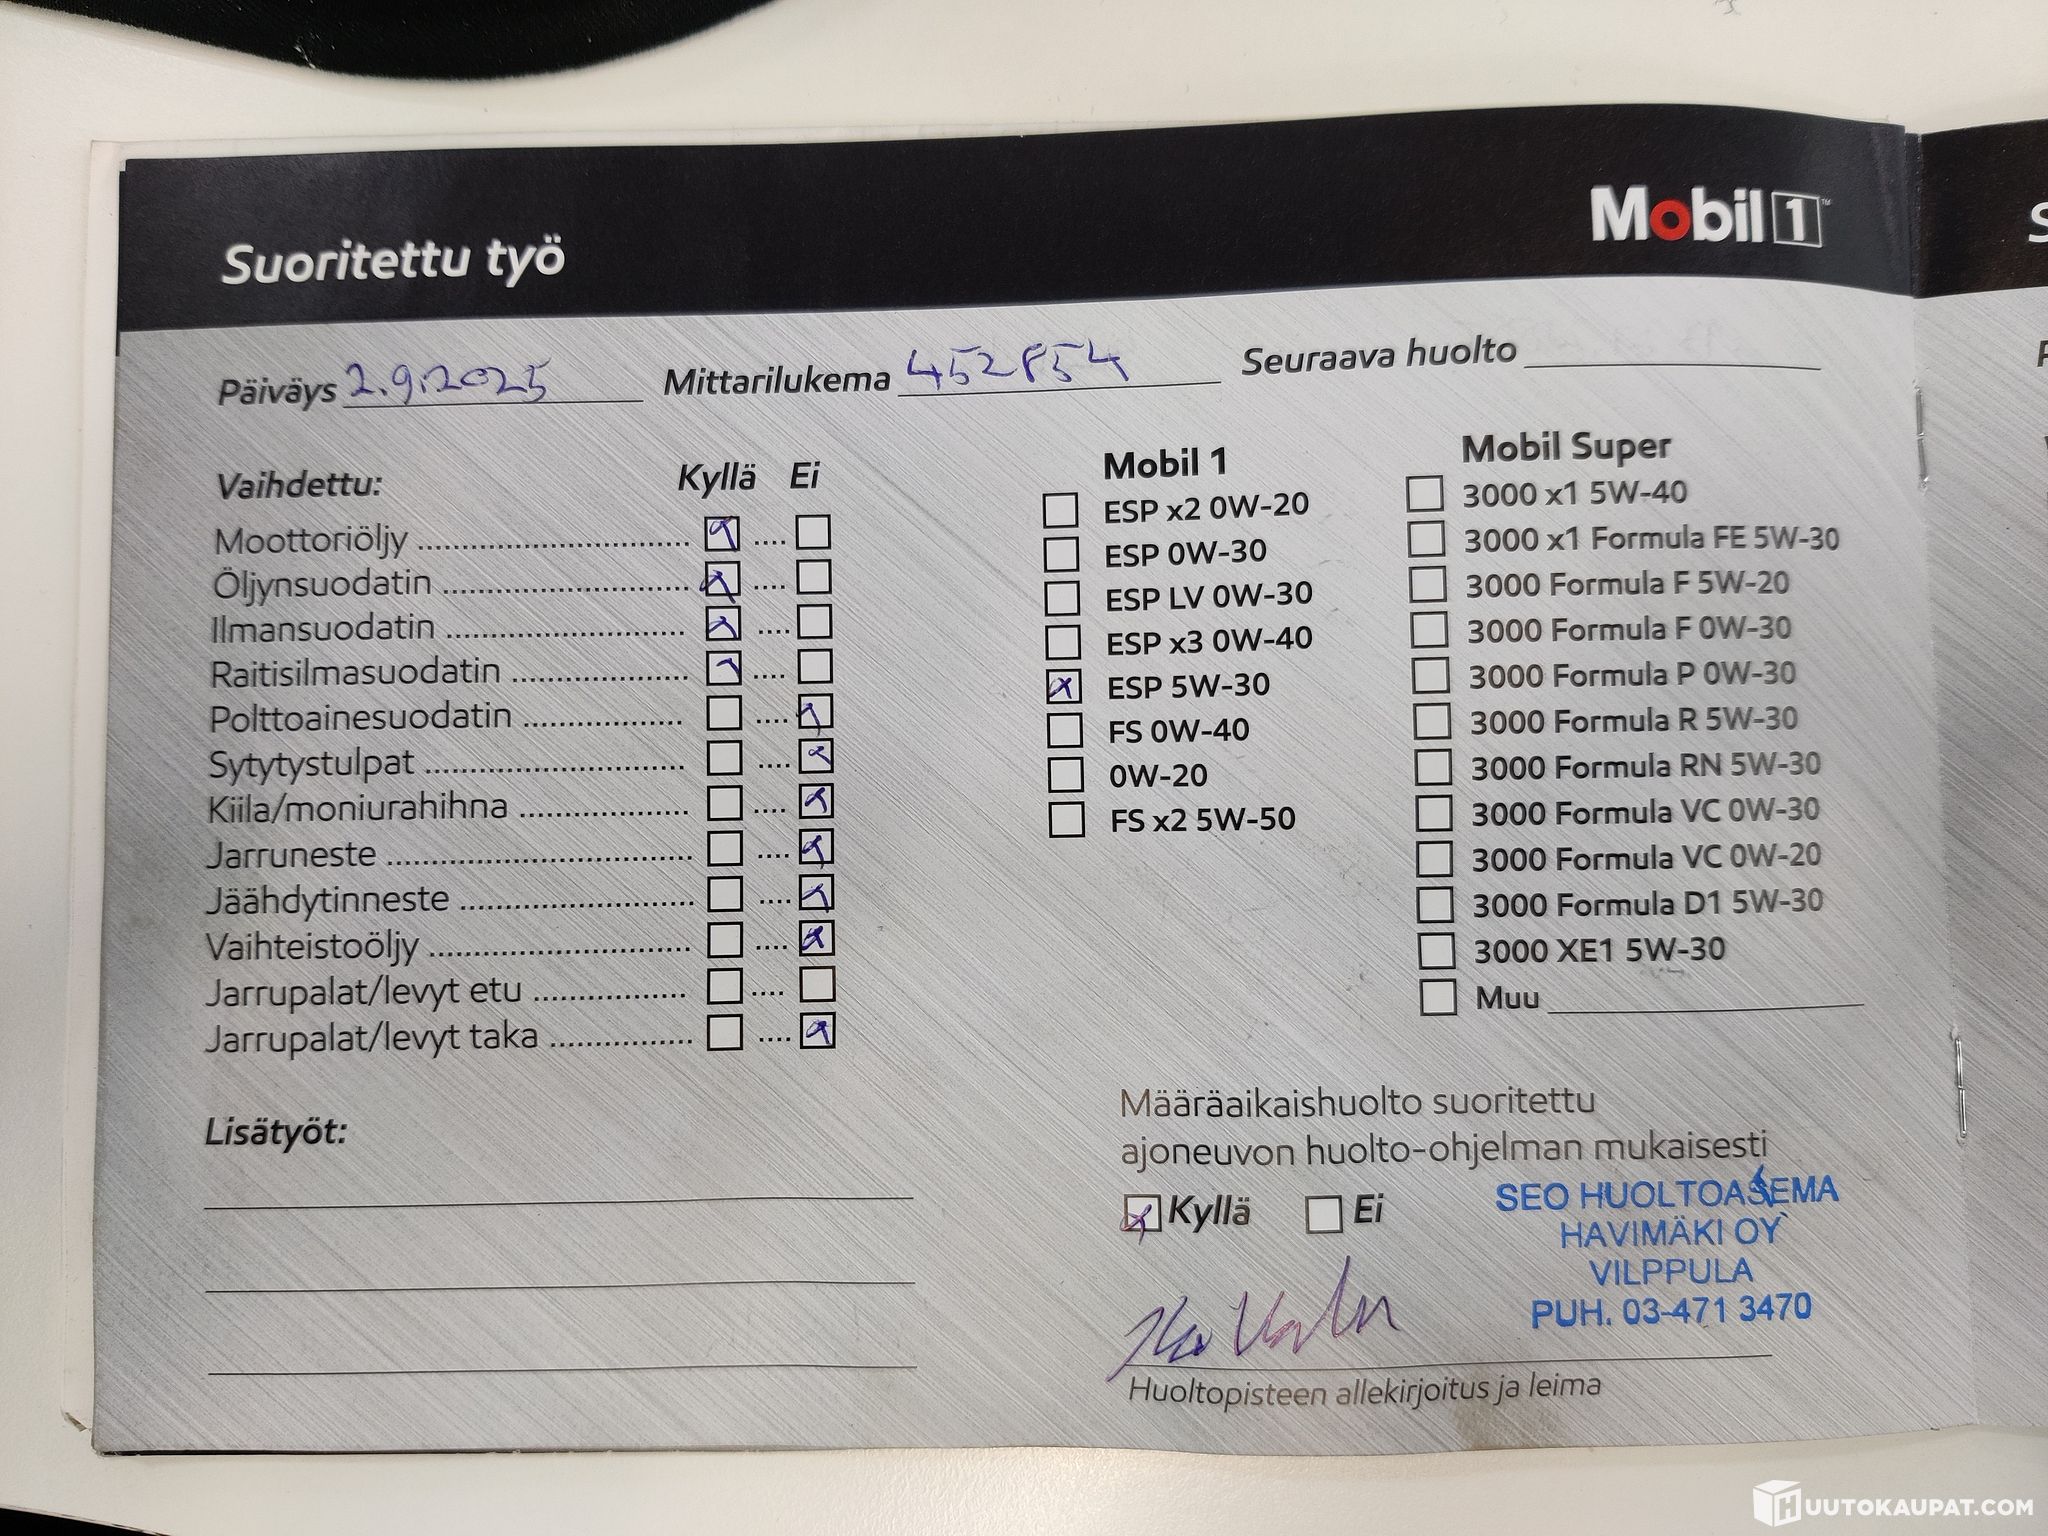 Mobil 1™
Suoritettu työ
Päiväys 2.9.2025 Mittarilukema 452854 Seuraava huolto
Vaihdettu: Kyllä Ei
Moottoriöljy
Öljynsuodatin
Ilmansuodatin
Raitisilmasuodatin
Polttoainesuodatin
Sytytystulpat
Kiila/moniurahihna
Jarruneste
Jäähdytinneste
Vaihteistoöljy
Jarrupalat/levyt etu
Jarrupalat/levyt taka
Lisätyöt:
Mobil 1
ESP x2 0W-20
ESP 0W-30
ESP LV 0W-30
ESP x3 0W-40
ESP 5W-30
FS 0W-40
0W-20
FS x2 5W-50
Mobil Super
3000 x1 5W-40
3000 x1 Formula FE 5W-30
3000 Formula F 5W-20
3000 Formula F 0W-30
3000 Formula P 0W-30
3000 Formula R 5W-30
3000 Formula RN 5W-30
3000 Formula VC 0W-30
3000 Formula VC 0W-20
3000 Formula D1 5W-30
3000 XE1 5W-30
Muu
Määräaikaishuolto suoritettu
ajoneuvon huolto-ohjelman mukaisesti
Kyllä Ei
SEO HUOLTOASEMA
HAVIMÄKI OY
VILPPULA
PUH. 03-471 3470
Huoltopisteen allekirjoitus ja leima
HUUTOKAUPAT.COM